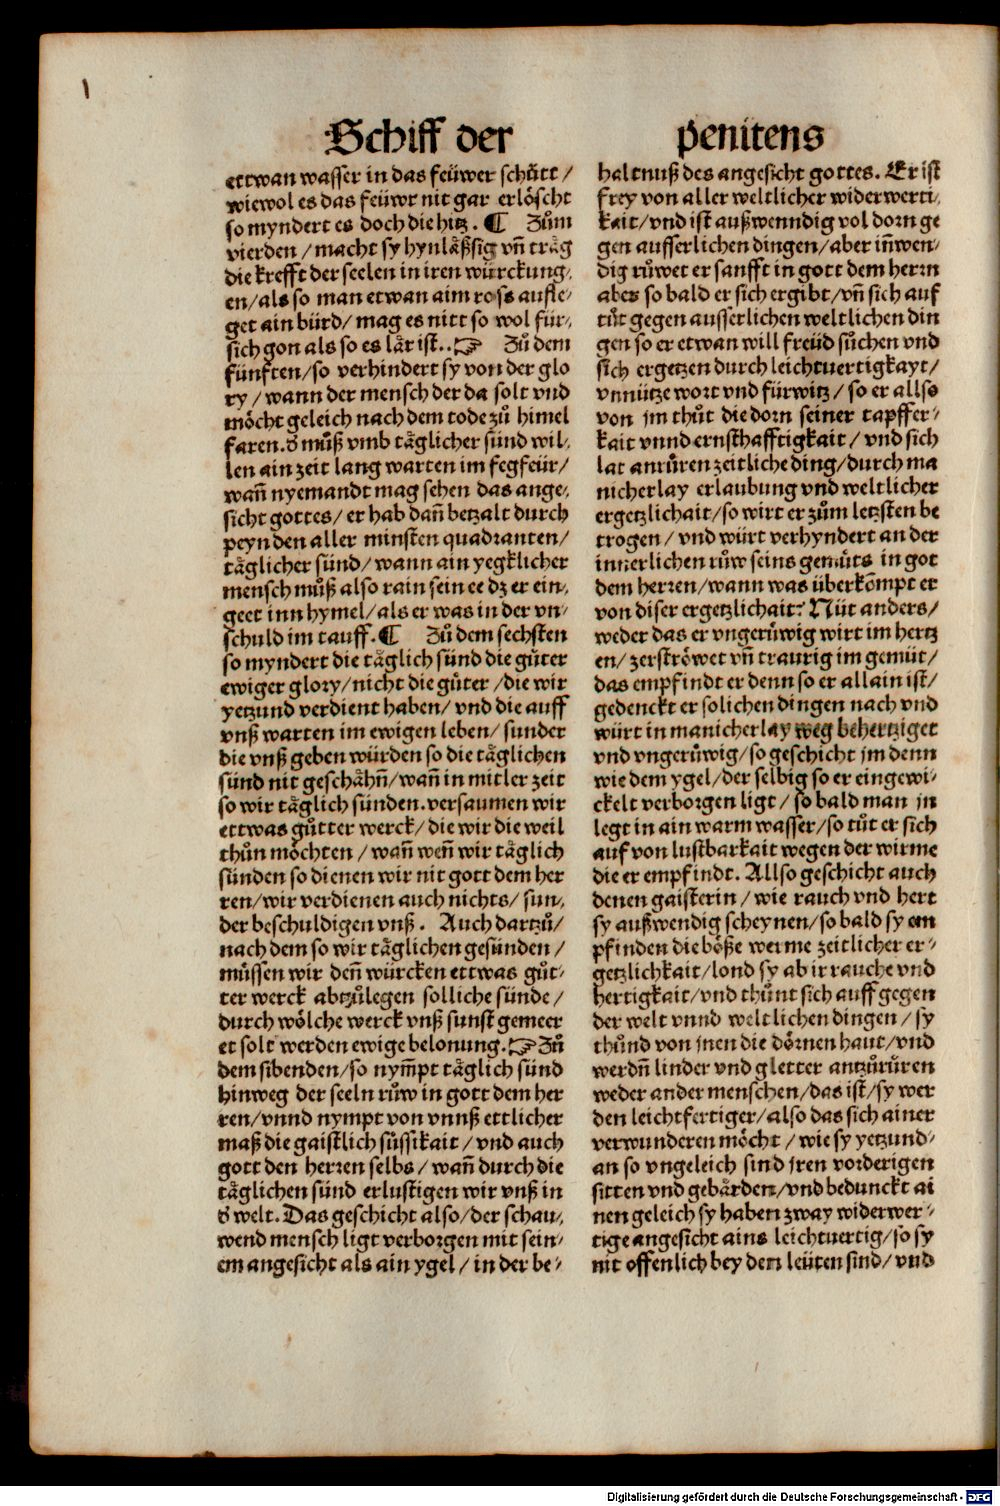 Schiff der penitens
ettwan wasser in das feüwer schütt /
wiewol es das feüwr nit gar erlöscht
so myndert es doch die hitz. ¶ Zům
vierden / macht sy hynläßsig vn̄ träg
die krefft der seelen in iren würckung⸗
en/als so man etwan aim ross aufle⸗
get ain bürd/ mag es nitt so wol für⸗
sich gon als so es lär ist..☞ Zů dem
fünften/so verhindert sy von der glo
ry / wann der mensch der da solt vnd
möcht geleich nach dem tode zů himel
faren.d' můß vmb täglicher sünd wil⸗
len ain zeit lang warten im fegfeür/
wan̄ nyemandt mag sehen das ange⸗
sicht gottes/ er hab dan̄ betzalt durch
peyn den aller minsten quadranten/
täglicher sünd/ wann ain yegklicher
mensch můß also rain sein ee dz er ein⸗
geet inn hymel/als er was in der vn⸗
schuld im tauff.¶ Zů dem sechsten
so myndert die täglich sünd die gůter
ewiger glory/nicht die gůter /die wir
yetzund verdient haben/ vnd die auff
vnß warten im ewigen leben/ sunder
die vnß geben würden so die täglichen
sünd nit geschähn̄/wan̄ in mitler zeit
so wir täglich sünden.versaumen wir
ettwas gůtter werck/die wir die weil
thůn möchten / wan̄ wen̄ wir täglich
sünden so dienen wir nit gott dem her
ren/wir verdienen auch nichts/ sun⸗
der beschuldigen vnß. Auch dartzů/
nach dem so wir täglichen gesünden /
müssen wir den̄ würcken ettwas gůt⸗
ter werck abtzůlegen solliche sünde /
durch wölche werck vnß sunst gemeer
et solt werden ewige belonung.☞Zů
dem sibenden/so nym̄pt täglich sünd
hinweg der seeln růw in gott dem her
ren/vnnd nympt von vnnß ettlicher
maß die gaistlich süssikait / vnd auch
gott den herren selbs / wan̄ durch die
täglichen sünd erlustigen wir vnß in
d' welt. Das geschicht also/der schau⸗
wend mensch ligt verborgen mit sein⸗
em angesicht als ain ygel / in der be⸗
haltnuß des angesicht gottes. Er ist
frey von aller weltlicher widerwerti⸗
kait/vnd ist außwenndig vol dorn ge
gen ausserlichen dingen/aber in̄wen⸗
dig růwet er sanfft in gott dem herrn
aber so bald er sich ergibt/vn̄ sich auf
tůt gegen ausserlichen weltlichen din
gen so er etwan will freüd sůchen vnd
sich ergetzen durch leichtuertigkayt/
vnnütze wort vnd fürwitz / so er allso
von jm thůt die dorn seiner tapffer⸗
kait vnnd ernsthafftigkait / vnd sich
lat anrůren zeitliche ding/durch ma
nicherlay erlaubung vnd weltlicher
ergetzlichait/so wirt er zům letzsten be
trogen / vnd würt verhyndert an der
innerlichen růw seins gemüts in got
dem herren/wann was überkōmpt er
von diser ergetzlichait? Nüt anders/
weder das er vngerůwig wirt im hertz
en/ zerströwet vn̄ traurig im gemüt/
das empfindt er denn so er allain ist/
gedenckt er solichen dingen nach vnd
würt in manicherlay weg behertziget
vnd vngerůwig/so geschicht jm denn
wie dem ygel/der selbig so er eingewi⸗
ckelt verborgen ligt / so bald man jn
legt in ain warm wasser/so tůt er sich
auf von lustbarkait wegen der wirme
die er empfindt. Allso geschicht auch
denen gaisterin / wie rauch vnd hert
sy außwendig scheynen/so bald sy em
pfinden die böße werme zeitlicher er⸗
getzlichkait/lond sy ab ir rauche vnd
hertigkait/vnd thůnt sich auff gegen
der welt vnnd weltlichen dingen / sy
thůnd von jnen die dörnen haut/vnd
werdn̄ linder vnd gletter antzůrůren
weder ander menschen/das ist/sy wer
den leichtfertiger/also das sich ainer
verwunderen möcht / wie sy yetzund⸗
an so vngeleich sind jren vorderigen
sitten vnd gebärden/vnd bedunckt ai
nen geleich sy haben zway widerwer⸗
tige angesicht ains leichtuertig/so sy
nit offenlich bey den leüten sind/ vnd
Digitalisierung gefördert durch die Deutsche Forschungsgemeinschaft - DFG